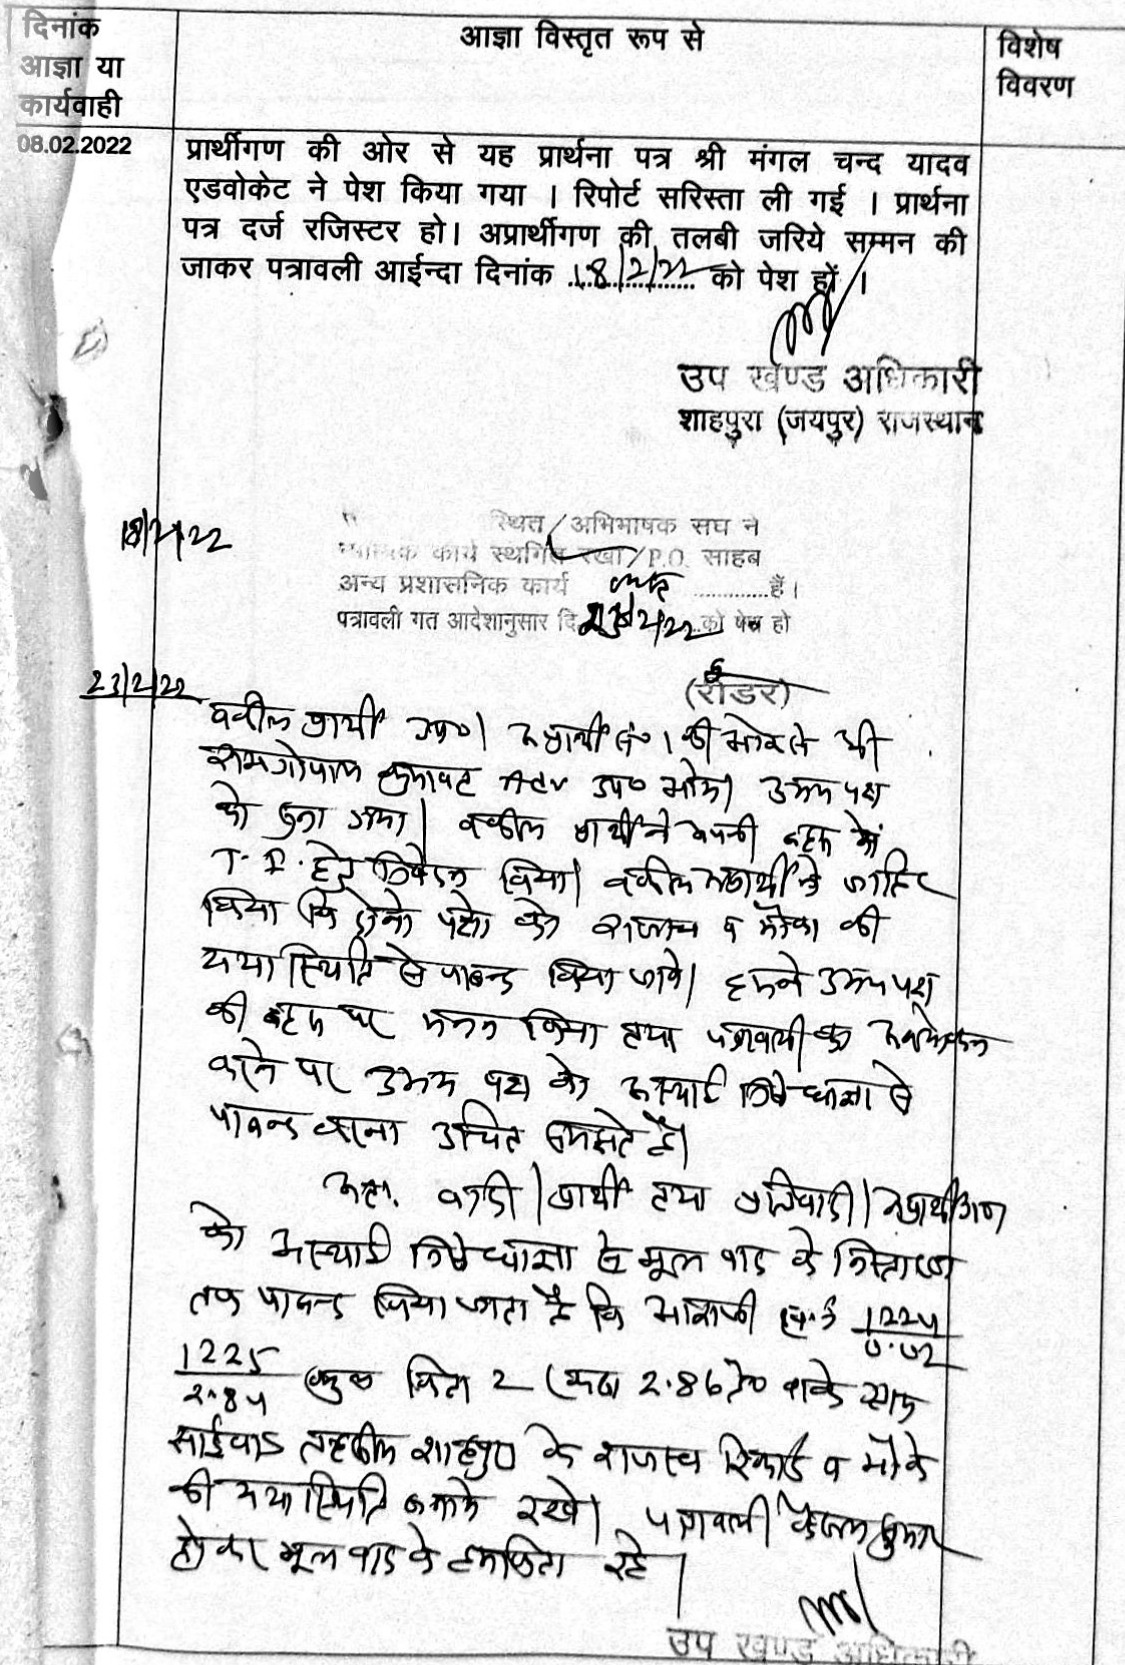 दिनांक
आज्ञा या
कार्यवाही
आज्ञा विस्तृत रूप से
विशेष
विवरण
08.02.2022
प्रार्थीगण की ओर से यह प्रार्थना पत्र श्री मंगल चन्द यादव
एडवोकेट ने पेश किया गया । रिपोर्ट सरिस्ता ली गई । प्रार्थना
पत्र दर्ज रजिस्टर हो। अप्रार्थीगण की तलबी जरिये सम्मन की
जाकर पत्रावली आईन्दा दिनांक 18/2/22 को पेश हों ।
उप खण्ड अधिकारी
शाहपुरा (जयपुर) राजस्थान
18/2/22
स्थित / अभिभाषक संघ ने
न्यायिक कार्य स्थगित रखा / P.O. साहब
अन्य प्रशासनिक कार्य व्यस्त ............हैं।
पत्रावली गत आदेशानुसार दि. 23/2/22 को पेश हो
(रीडर)
23/2/22
वकील प्रार्थी उप०। अप्रार्थी सं० 1 की ओर से श्री
रामगोपाल कुमावत Adv उप० आये। उभय पक्ष
को सुना गया। वकील प्रार्थी ने अपनी बहस में
T.I. हेतु निवेदन किया। वकील अप्रार्थी ने जाहिर
किया कि दोनो पक्षो को राजस्व व मौका की
यथास्थिति से पाबन्द किया जावे। हमने उभय पक्ष
की बहस पर मनन किया तथा पत्रावली का अवलोकन
करने पर उभय पक्ष को अस्थाई निषेधाज्ञा से
पाबन्द करना उचित समझते है।
अतः वादी/प्रार्थी तथा प्रतिवादी/अप्रार्थीगण
को अस्थाई निषेधाज्ञा से मूल वाद के निस्तारण
तक पाबन्द किया जाता है कि आराजी ख.नं. 1224/0.02
1225/2.84 कुल किता 2 रकबा 2.86 है० वाके ग्राम
साईवाड तहसील शाहपुरा के राजस्व रिकार्ड व मौके
की यथास्थिति बनाये रखे। पत्रावली फैसल शुमार
होकर मूल वाद के हमफिता रहे।
उप खण्ड अधिकारी